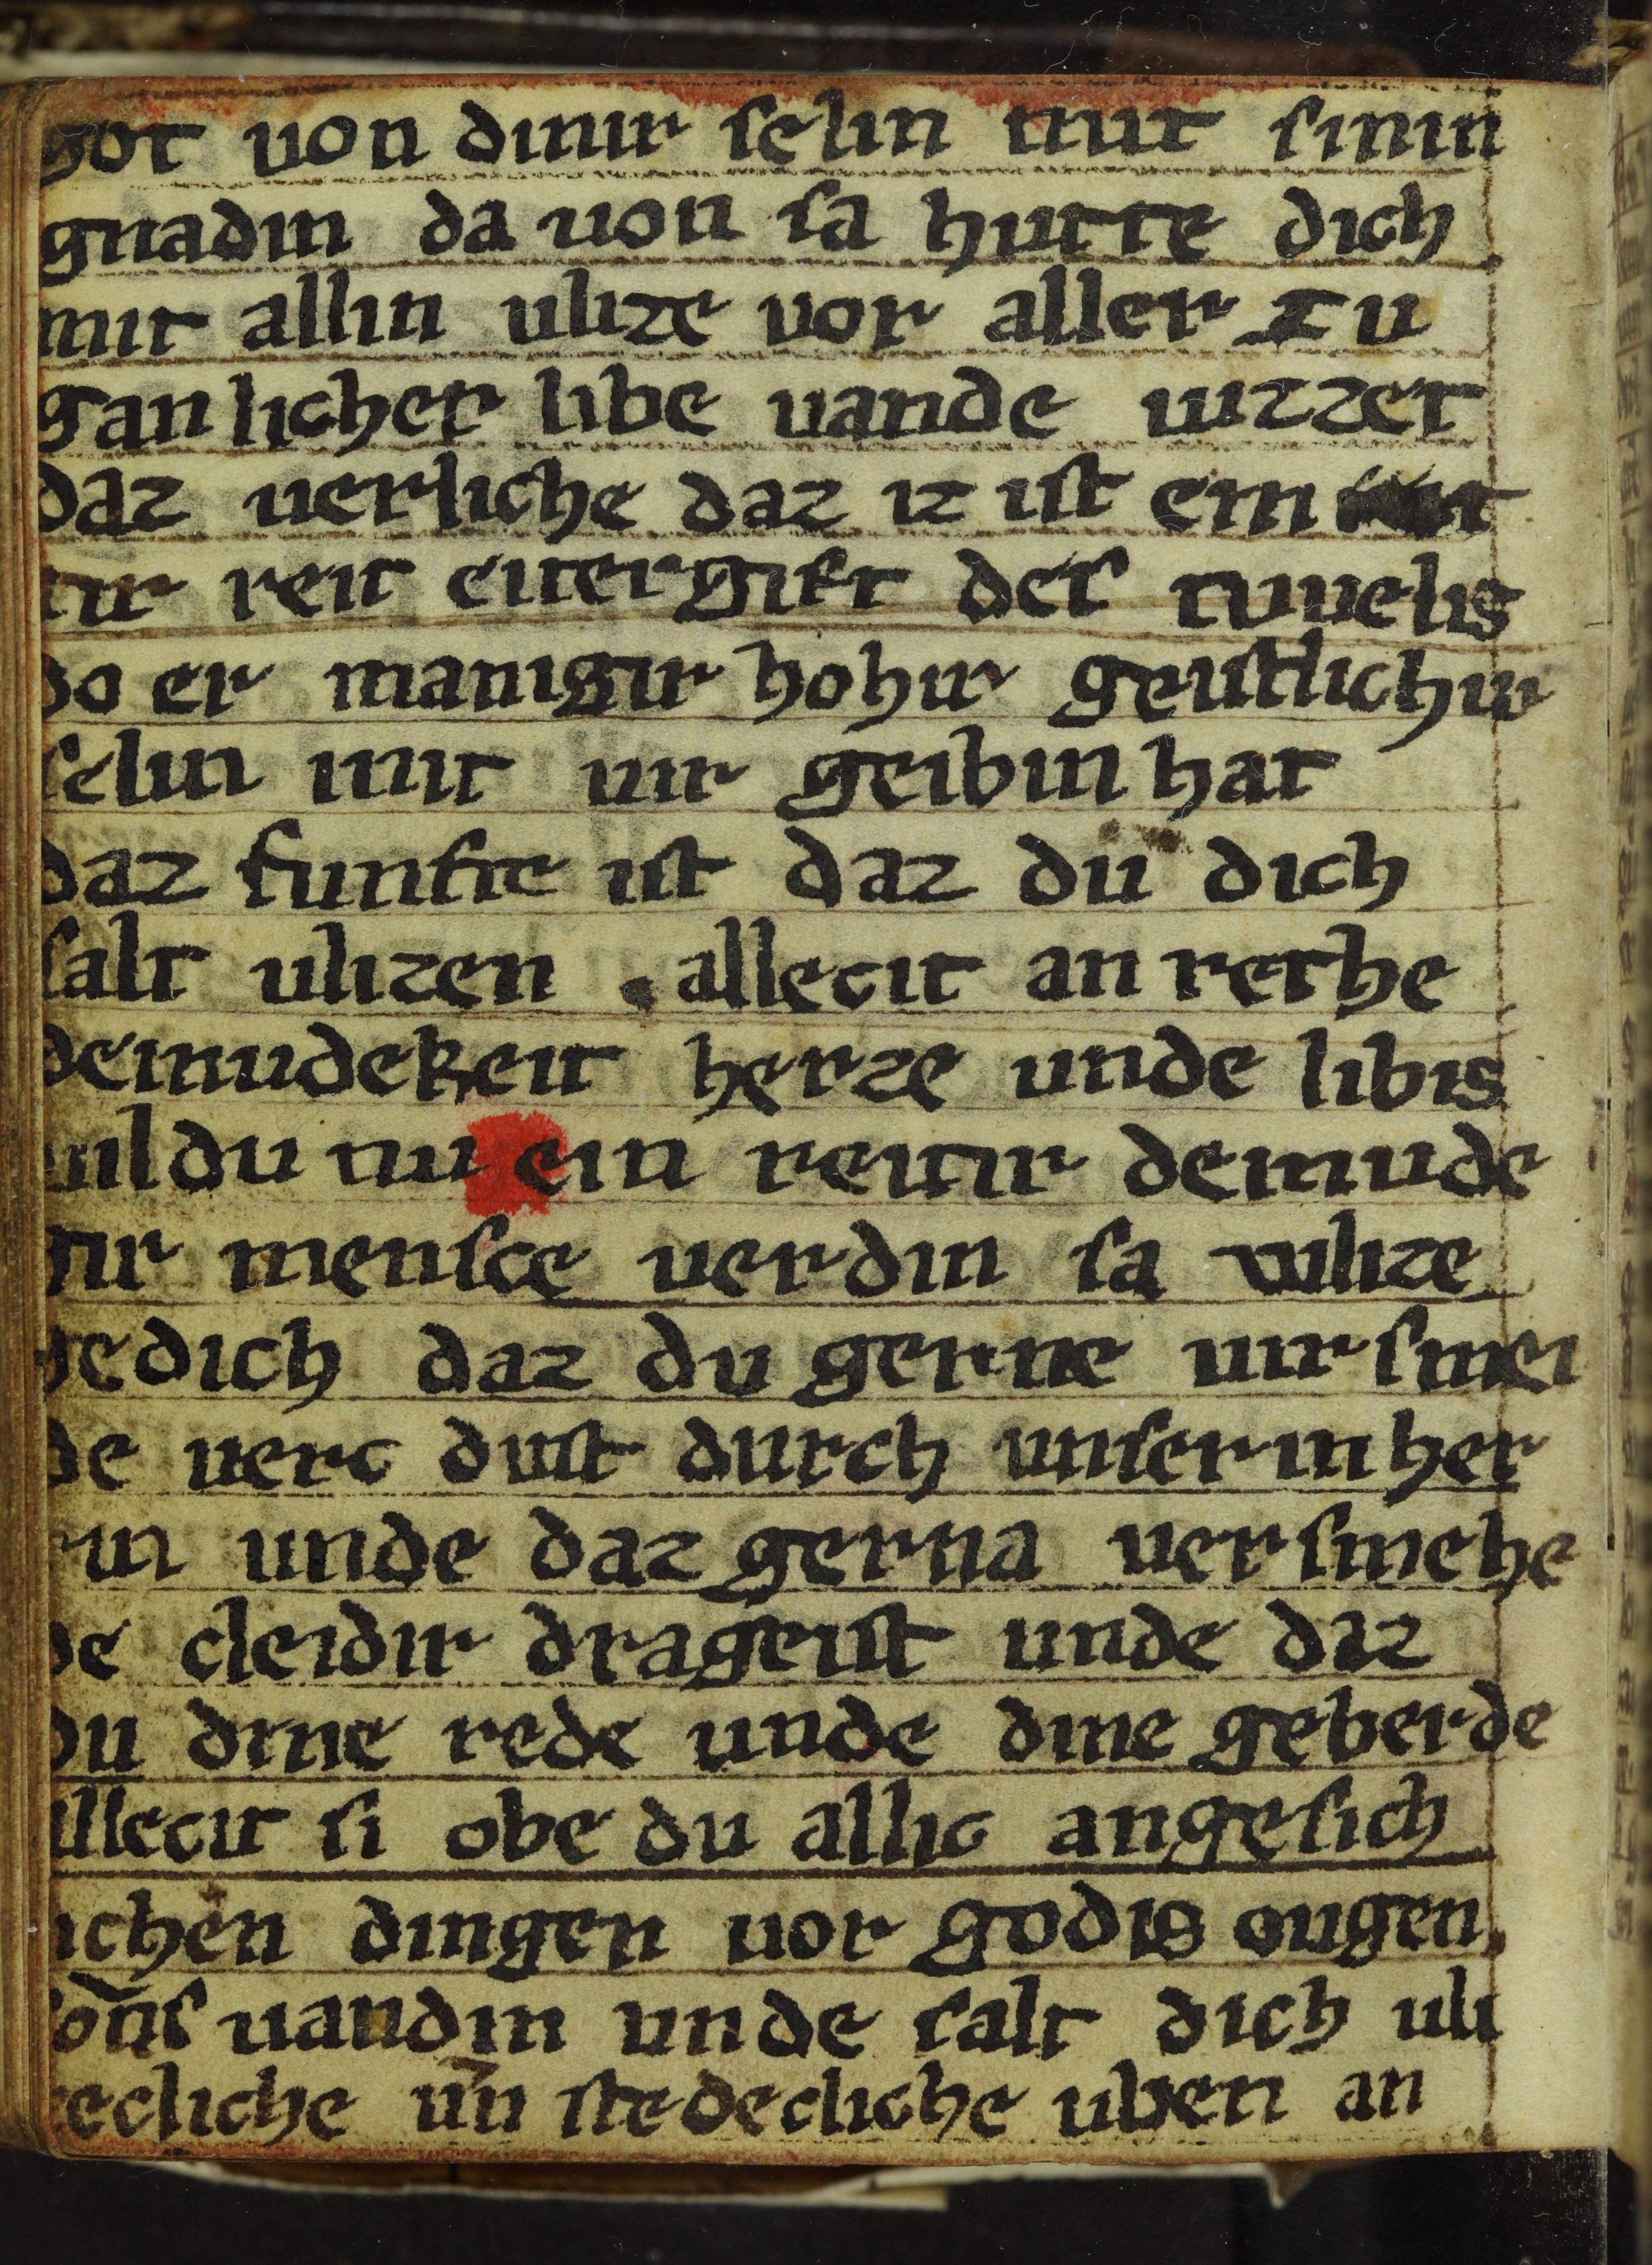 got uon dinir ſelin mit ſinin
gnadin da uon ſa hutte dich
mit allin ulize vor aller zu
ganlicher libe uande uizzet
daz uerliche daz iz iſt ein
tir reit eitergift deſ tuuelis
do er manigir hohir geiſtlichir
ſelin mit uir geibin hat
daz funfte iſt daz du dich
ſalt ulizen . allecit an rethe
demudekeit herze unde libis
uil du nu ein rettir demude
gir menſce uerdin ſa vulize
ge dich daz du gerne uirſmei
de uerc duſt durch unſerin her
rin unde daz gerna uerſmehe
de cleidir drageiſt unde daz
du dine rede unde dine geberde
allecit ſi obe du allic angeſich
lichen dingen uor godis ougen
ſonſ uandin unde ſalt dich uli
zecliche un̄ ſtedecliche uben an